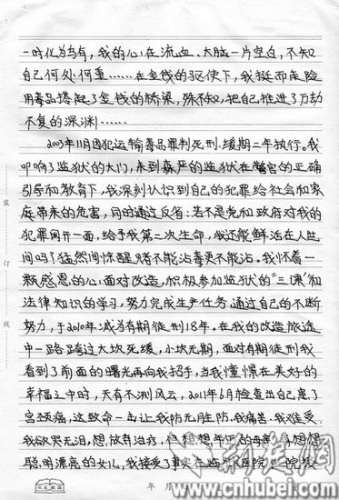 一时化为乌有，我的心在流血、大脑一片空白，不知
自己何处何重……在金钱的驱使下，我铤而走险
用毒品搭起了金钱的桥梁，殊不知，把自己推进了万劫
不复的深渊……
2003年11月因犯运输毒品罪判死刑，缓期二年执行。我
叩响了监狱的大门，来到森严的监狱在警官的正确
引导和教育下，我深刻认识到自己的犯罪给社会和家
庭带来的危害，同时通过反省：若不是党和政府对我的
犯罪网开一面，给予我第二次生命，我还能鲜活在人世
间吗？猛然间惊醒赌不能沾毒更不能沾。我怀着一
颗感恩的心，面对改造，积极参加监狱的“三课”和
法律知识的学习，努力完成生产任务，通过自己的不断
努力，于2010年减为有期徒刑18年，在我的改造旅途
中一路跨过大坎死缓，小坎无期，面对有期徒刑我
看到了前面的曙光再向我招手，当我憧憬在美好的
幸福之中时，天有不测风云，2011年6月检查出自己患了
宫颈癌，这致命一击让我防无胜防，我痛苦、我难受、
我欲哭无泪，想放弃治疗，但想想年迈的母亲，想想
聪明漂亮的女儿，我接受了事实
年 月
装
订
线
荆楚网
www.cnhubei.com